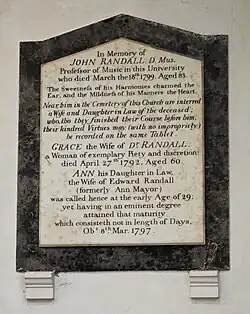 In Memory of
JOHN RANDALL D. Mus.
Professor of Music in this University
who died March the 18th 1799. Aged 83.
The Sweetneſs of his Harmonies charmed the
Ear, and the Mildneſs of his Manners the Heart.
Near him in the Cemetery of this Church are interred
a Wife and Daughter in Law of the deceased,
who, tho they finished their Course before him,
their kindred Virtues may (with no impropriety)
be recorded on the same Tablet.
GRACE the Wife of Dr. RANDALL.
a Woman of exemplary Piety and discretion:
died April 27th 1792. Aged 60.
ANN his Daughter in Law,
the Wife of Edward Randall
(formerly Ann Mayor)
was called hence at the early Age of 29:
yet having in an eminent degree
attained that maturity
which consisteth not in length of Days.
Obt. 8th Mar. 1797